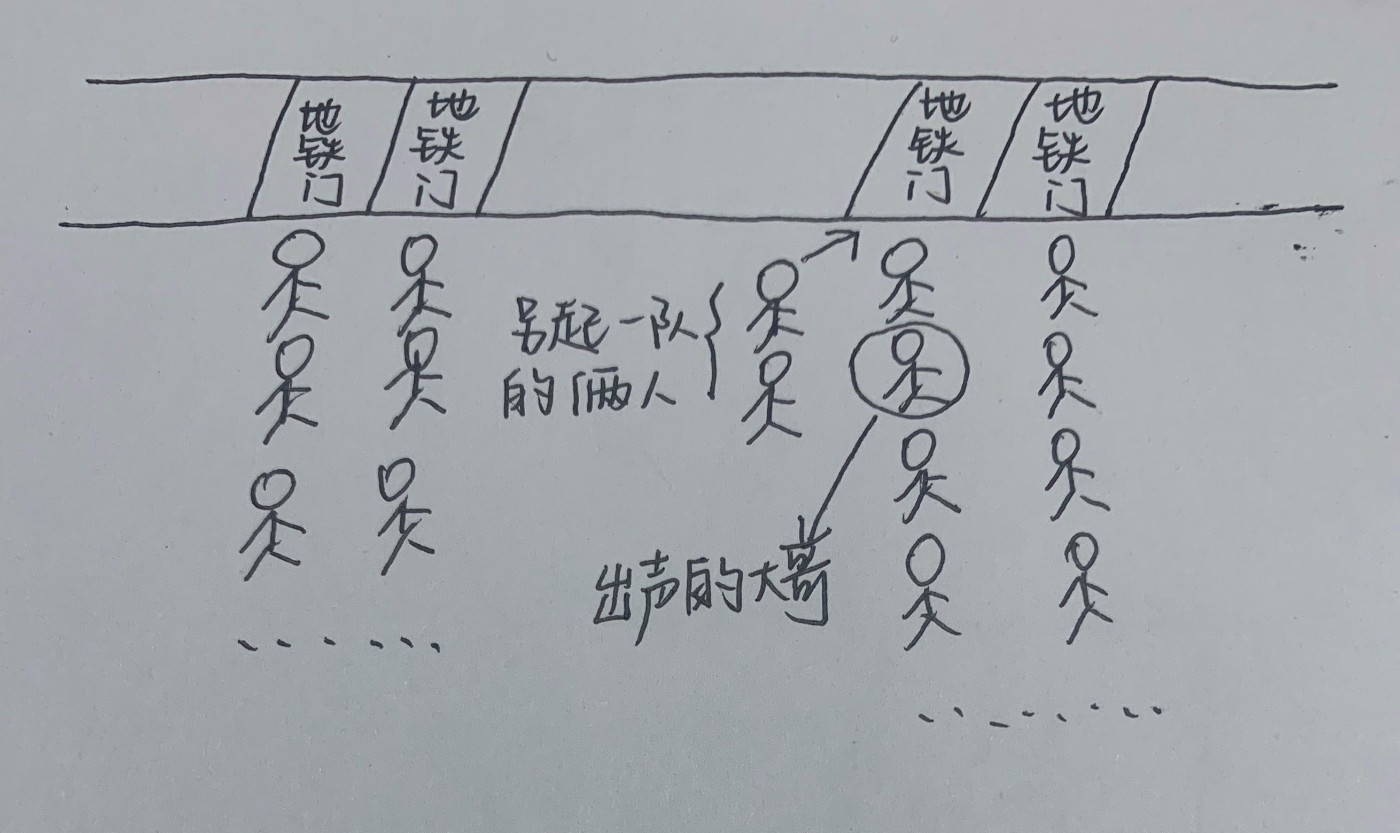 地铁门
地铁门
地铁门
地铁门
另起一队
的俩人
出声的大哥